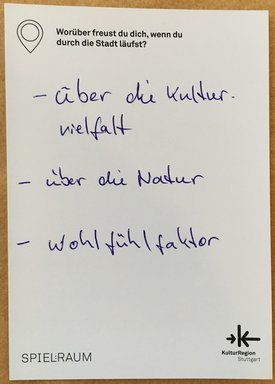 Worüber freust du dich, wenn du
durch die Stadt läufst?
- über die Kultur-
vielfalt
- über die Natur
- wohlfühlfaktor
SPIEL:RAUM
KulturRegion
Stuttgart